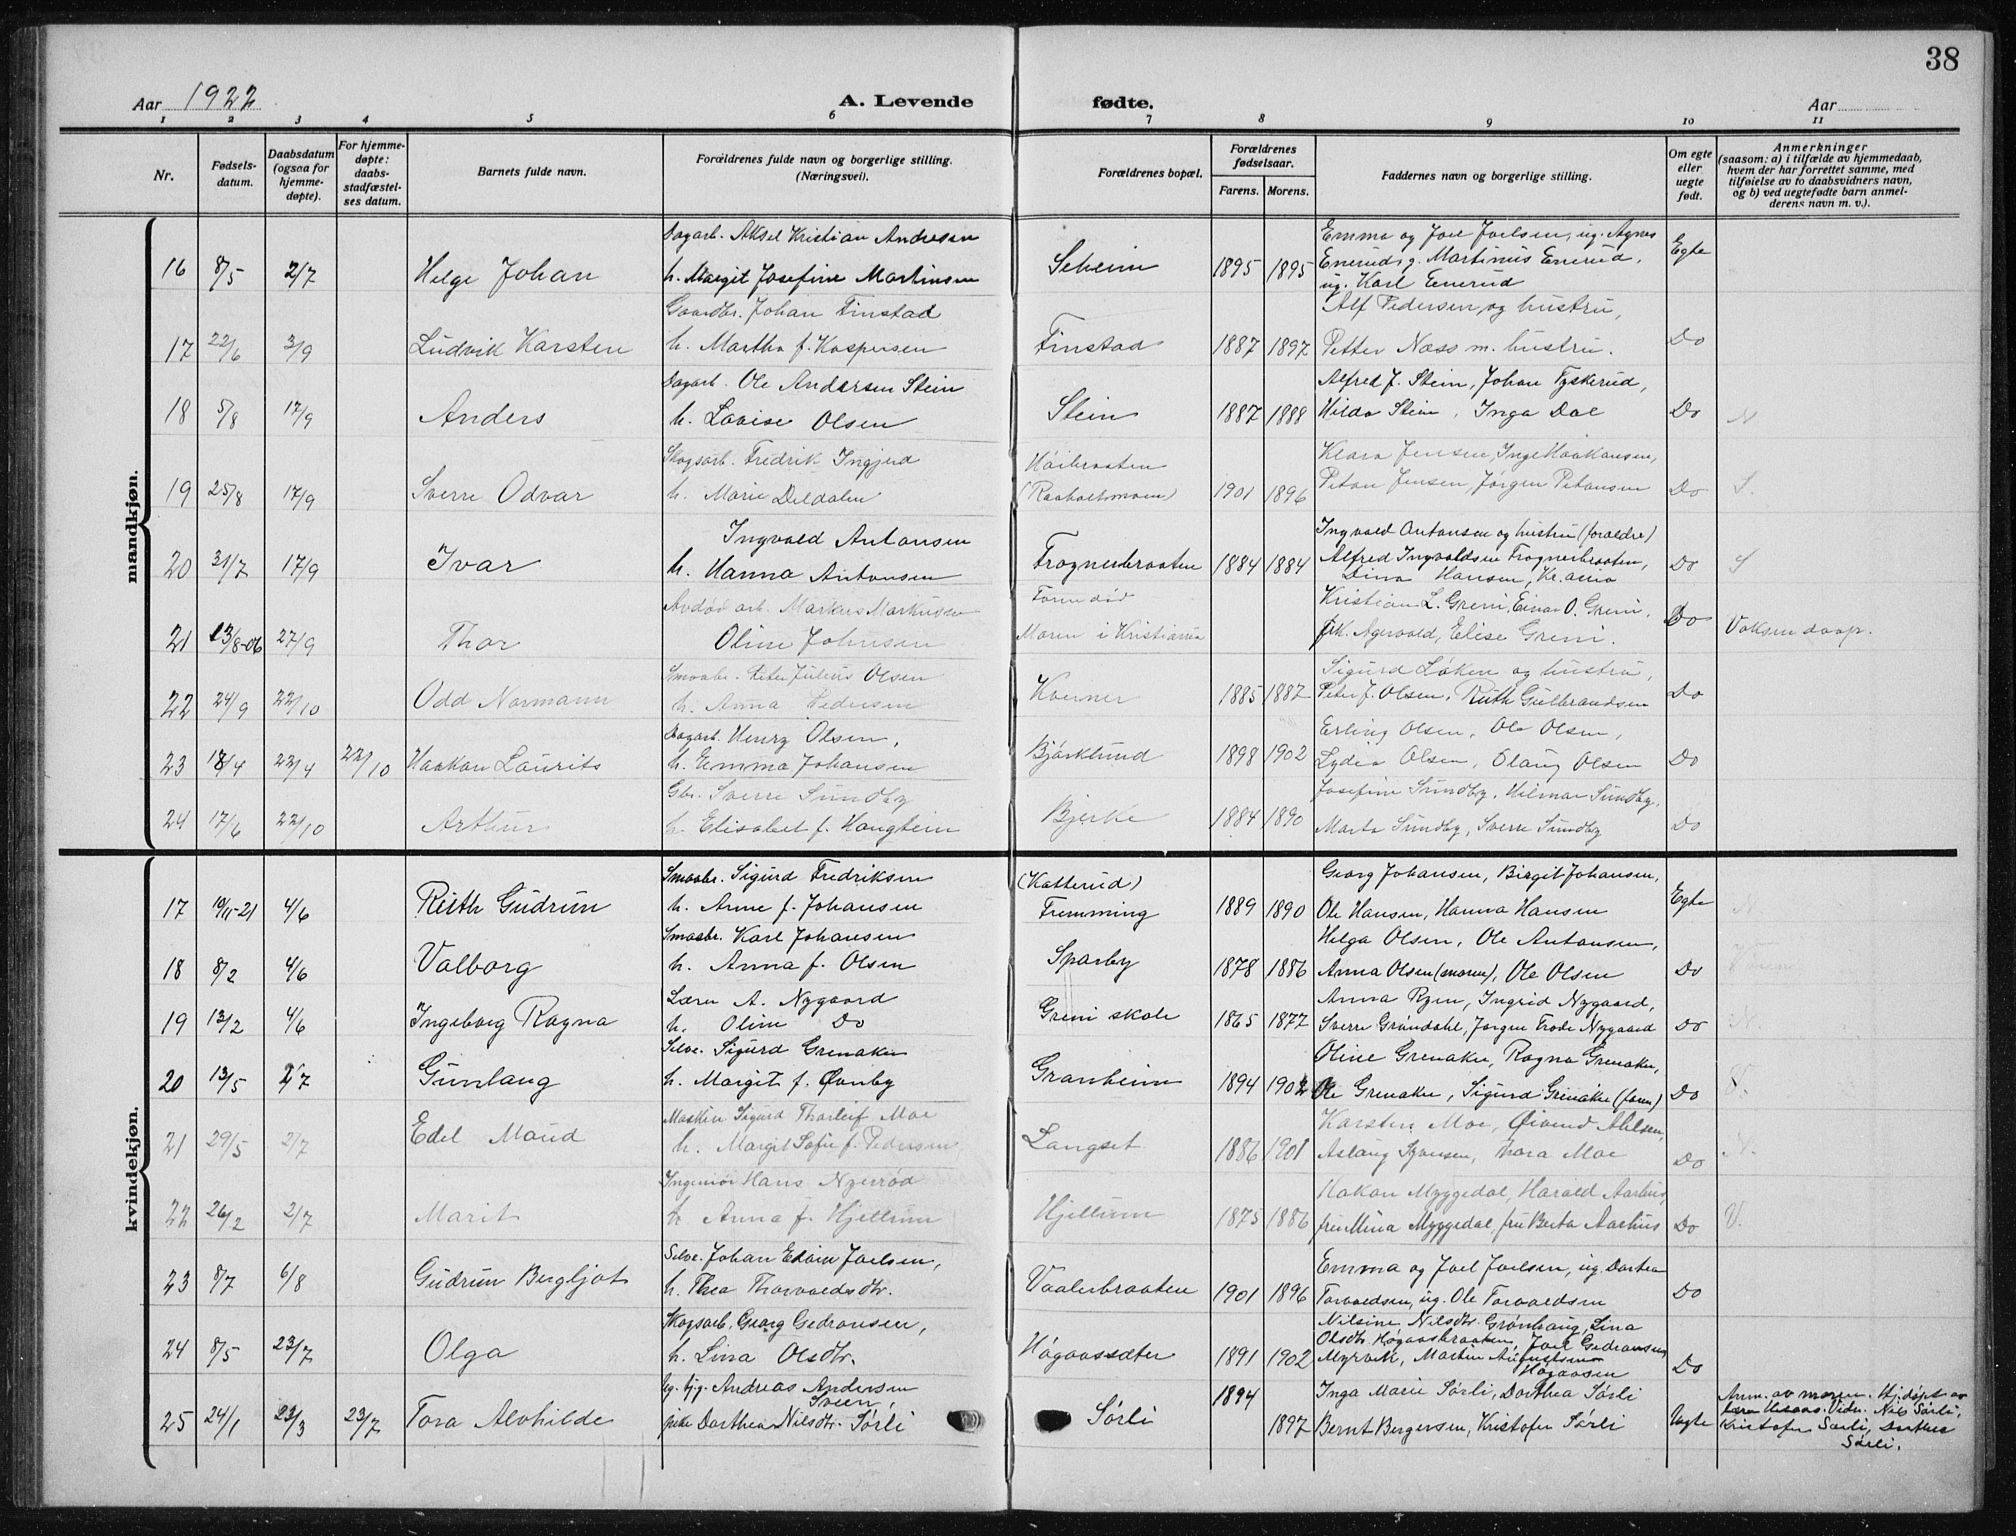 38
Aar 1922
A. Levende fødte.
Aar
1 2 3 4 5 6 7 8 9 10 11
Nr.
Fødsels-
datum.
Daabsdatum
(ogsaa for
hjemme-
døpte).
For hjemme-
døpte:
daabs-
stadfæstel-
ses datum.
Barnets fulde navn.
Forældrenes fulde navn og borgerlige stilling.
(Næringsvei).
Forældrenes bopæl.
Forældrenes
fødselsaar.
Farens. Morens.
Faddernes navn og borgerlige stilling.
Om egte
eller
uegte
født.
Anmerkninger
(saasom: a) i tilfælde av hjemmedaab,
hvem der har forrettet samme, med
tilføielse av to daabsvidners navn,
og b) ved uegtefødte barn anmel-
derens navn m. v.).
mandkjøn.
Dagarb. Aksel Kristian Andresen Emma og Joel Joelsen, ug. Agnes
16 8/5 2/7 Helge Johan h. Margit Josefine Martinsen Seheim 1895 1895 Enerud, g. Martinus Enerud, Egte
ug. Karl Enerud
Gaardbr. Johan Finstad Alf Pedersen og hustru,
17 22/6 3/9 Ludvik Karsten h. Martha f. Kaspersen Finstad 1887 1897 Petter Næss m. hustru. Do
Dagarb. Ole Andersen Stein Alfred J. Stein, Johan Tyskerud,
18 5/8 17/9 Anders h. Lovise Olsen Stein 1887 1888 Hilda Stein, Inga Dal Do N
Skogsarb. Fredrik Ingjerd Høibraaten Klara Jensen, Inge Haakansen,
19 25/8 17/9 Sverre Odvar h. Marie Deldalen (Raaholtmoen) 1901 1896 Petan Jensen, Jørgen Petansen Do S.
Ingvald Antonsen Ingvald Antonsen og hustru (foreldre)
20 31/7 17/9 Ivar h. Hanna Antonsen Frognerbraaten 1884 1884 Alfred Ingvaldsen Frognerbraaten, Do S
Dina Hansen, Kr.ania
Avdød arb. Markus Markussen Faren død Kristian L. Greni, Einar O. Greni,
21 13/8-06 27/9 Thor Oline Johnsen Moren i Kristiania frk. Agervold, Elise Greni. Do Voksen daap.
Smaabr. Peter Julius Olsen Sigurd Løken og hustru,
22 24/9 22/10 Odd Normann h. Anna Pedersen Kverner 1885 1887 Peter J. Olsen, Ruth Gulbrandsen Do
Dagarb. Henry Olsen, Erling Olsen, Ole Olsen,
23 18/4 23/4 22/10 Haakon Laurits h. Emma Johansen Bjørklund 1898 1902 Lydia Olsen, Olaug Olsen Do
Gbr. Sverre Sundby Josefine Sundby, Hilmar Sundby,
24 17/6 22/10 Arthur h. Elisabet f. Haugheim Bjerke 1884 1890 Marta Sundby, Sverre Sundby Do
kvindekjøn.
Smaabr. Sigurd Fredriksen (Katterud) Georg Johansen, Birgit Johansen,
17 19/11-21 4/6 Ruth Gudrun h. Anne f. Johansen Fremming 1889 1890 Ole Hansen, Hanna Hansen Egte N
Smaabr. Karl Johansen Helga Olsen, Ole Antonsen,
18 8/2 4/6 Valborg h. Anna f. Olsen Sparby 1878 1886 Anna Olsen (moren), Ole Olsen Do
Lærer A. Nygaard Anna Ryen, Ingrid Nygaard,
19 13/2 4/6 Ingeborg Ragna h. Oline Do Greni skole 1865 1877 Sverre Grøndahl, Jørgen Frode Nygaard Do N.
Selve. Sigurd Grenaker Oline Grenaker, Ragna Grenaker,
20 13/5 2/7 Gunlaug h. Margit f. Øvnby Granheim 1894 1902 Ole Grenaker, Sigurd Grenaker (faren) Do V.
Maskin Sigurd Tharleif Moe Karsten Moe, Øivind Ahlsen,
21 29/5 2/7 Edel Maud h. Margit Sofie f. Pedersen Langset 1886 1901 Aslaug Syversen, Thora Moe Do N.
Ingeniør Hans Nyerrød Hakon Myggedal, Harald Aarhus,
22 26/2 2/7 Marit h. Anna f. Hjellum Hjellum 1875 1886 fru Mina Myggedal, fru Berta Aarhus Do V.
Selve. Johan Edvin Joelsen, Emma og Joel Joelsen, ug. Dortea
23 8/7 6/8 Gudrun Bergljot h. Thea Thorvaldsdtr. Vaalerbraaten 1901 1896 Torvaldsen, ug. Ole Torvaldsen Do
Skogsarb. Georg Gedionsen, Nilsine Nilsdtr. Grønhaug, Lina
Olsdtr. Høgaasbraaten, Joel Gedeonsen
24 8/5 23/7 Olga h. Lina Olsdtr. Høgaassæter 1891 1902 Myrvik, Martin Augustsen Do
Høgaasen
ug. gg. Andreas Andersen 1894 Inga Marie Sørli, Dorthea Sørli Anm. av moren. Hj.døpt av
Sveen,
25 24/1 23/3 23/7 Tora Alvhilde pike Dorthea Nilsdtr. Sørli Sørli 1897 Bernt Bergersen, Kristofer Sørli Uegte Vidn. Nils Sørli,
Kristofer Sørli, Dorthea
Sørli.